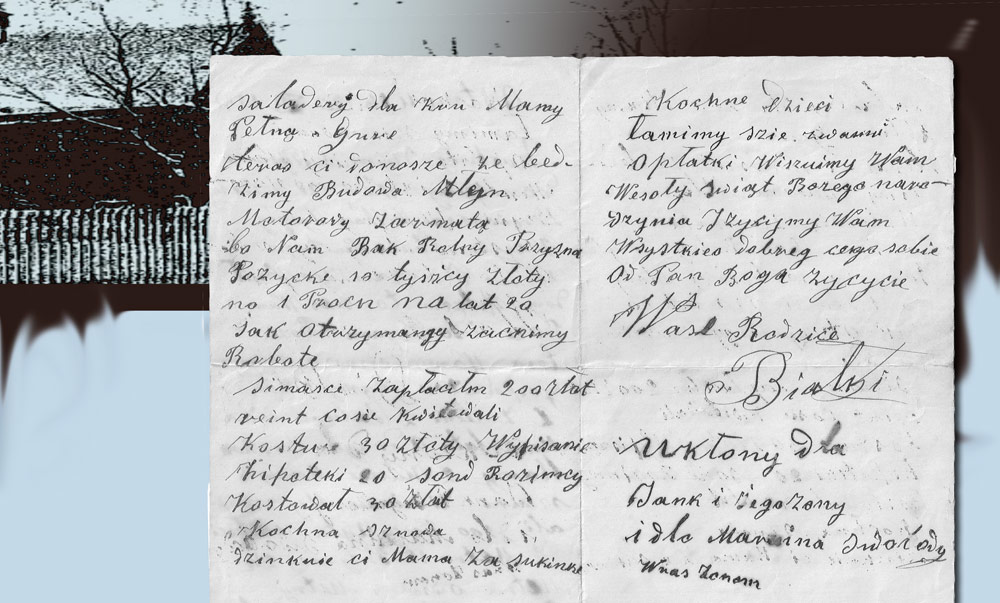 dla kon Mamy
Pełno
teras ci donosze ze bed-
zimy Budowa Młyn
Motorory
bo Nam Bak Rolny Przyzna
Pozycke 10 tyiscy Złoty
na 1 Procn na lat 20
jak otrzymamy zacnimy
Robote
Zapłaciłm 200 złot
reint cosie
Kostu 30 złoty Wypisanie
hipoteki 20 sond Rozimcy
Kostował 30 złot
Kochna
dzinkuie ci Mama za sukinke
Kochne Dzieci
Łamimy szie zwami
Opłatki Wiszuimy Wam
Wesoły Swiąt Bozego naro-
dzynia I zycyjmy Wam
Wsystkieo dobreg cego sobie
Od Pan Boga zycycie
Wasi Rodzice
Bialki
Ukłony dla
Jank i iego zony
i dlo Marcina
Wras zonom